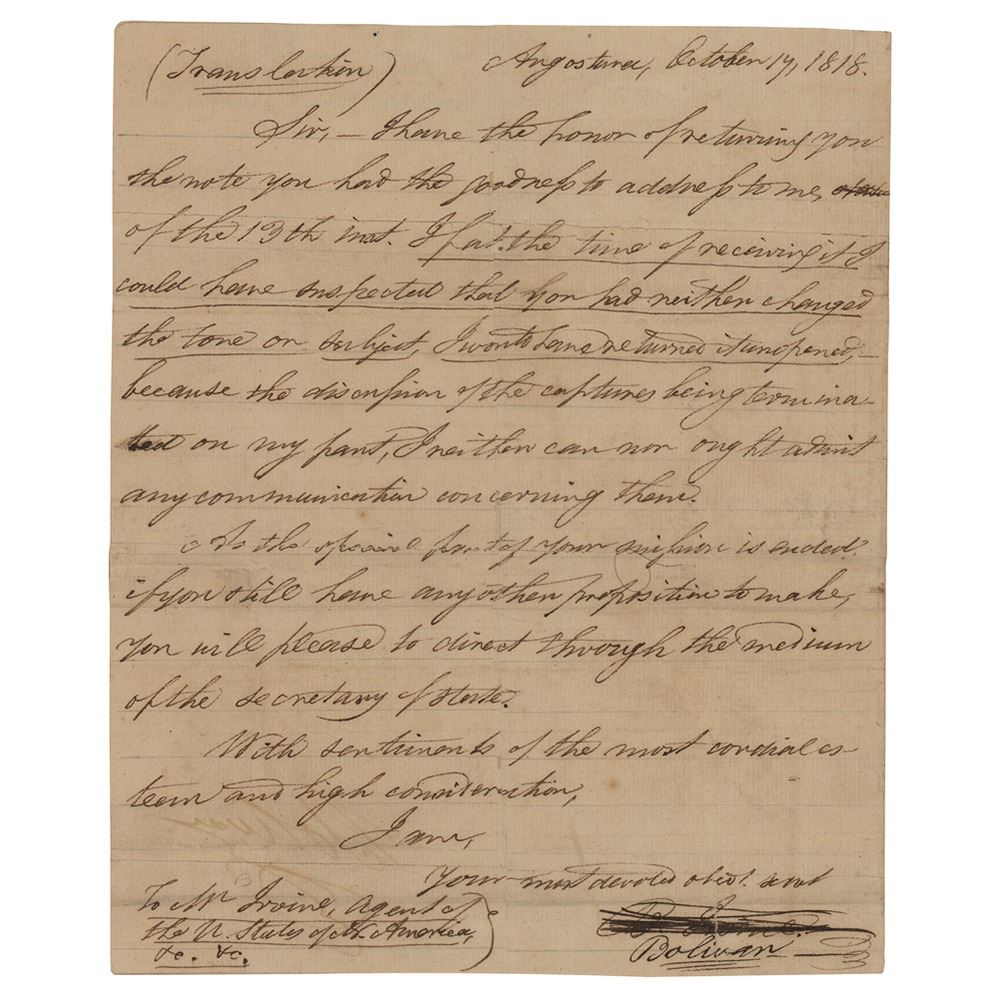 (Translation) Angostura, October 17, 1818.
Sir, — I have the honor of returning you
the note you had the goodness to address to me,
of the 13th inst. If at the time of receiving it I
could have suspected that you had neither changed
the tone or subject, I would have returned it unopened,
because the discussion of the captures being termina-
ted on my part, I neither can nor ought admit
any communication concerning them.
As the special part of your mission is ended,
if you still have any other proposition to make,
you will please to direct through the medium
of the secretary of state.
With sentiments of the most cordial es-
teem and high consideration,
I am,
Your most devoted obedt. servt
To Mr Irvine, Agent of
the U. States of N. America,
&c. &c.
Bolivar